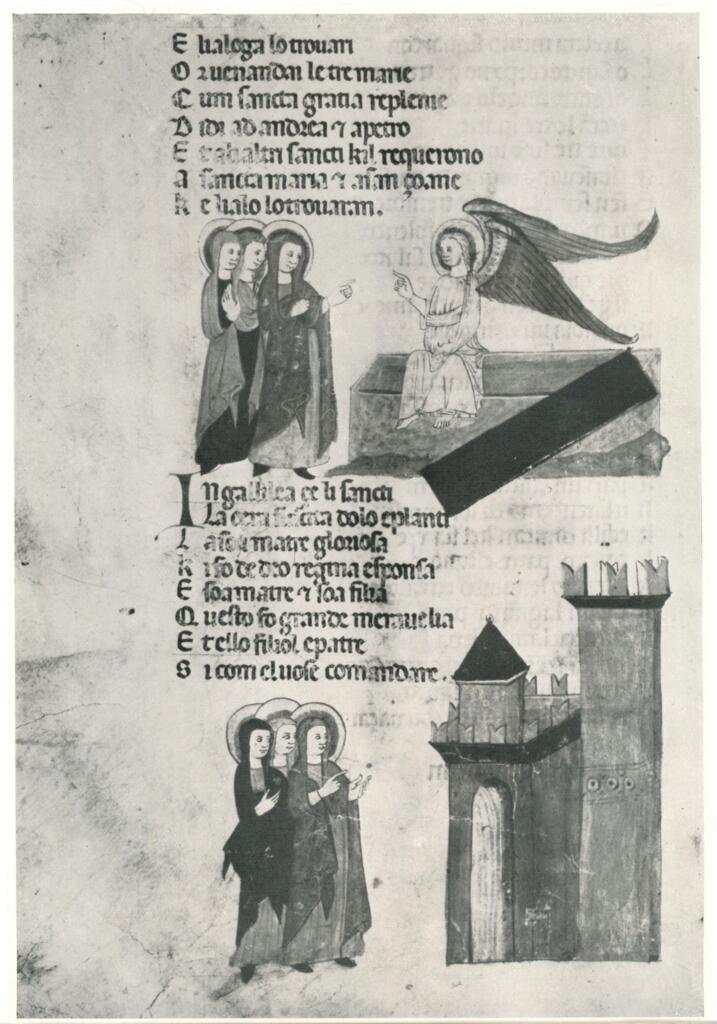 E lialoga lo trouari
O 2 uenandai le tre marie
C um sancta gratia replenie
D idi ad andrea ⁊ apetro
E altri sancti kil requerono
A sancta maria ⁊ asan çoane
K e lialo lo trouaran.
I n galilea li sancti
L a dolo eplanti
L a soa matre gloriosa
K i fo de deo regina esponsa
E soa matre ⁊ soa filia
Q uesto fo grande merauelia
E t ello filiol epatre
S i com el uose comandare.